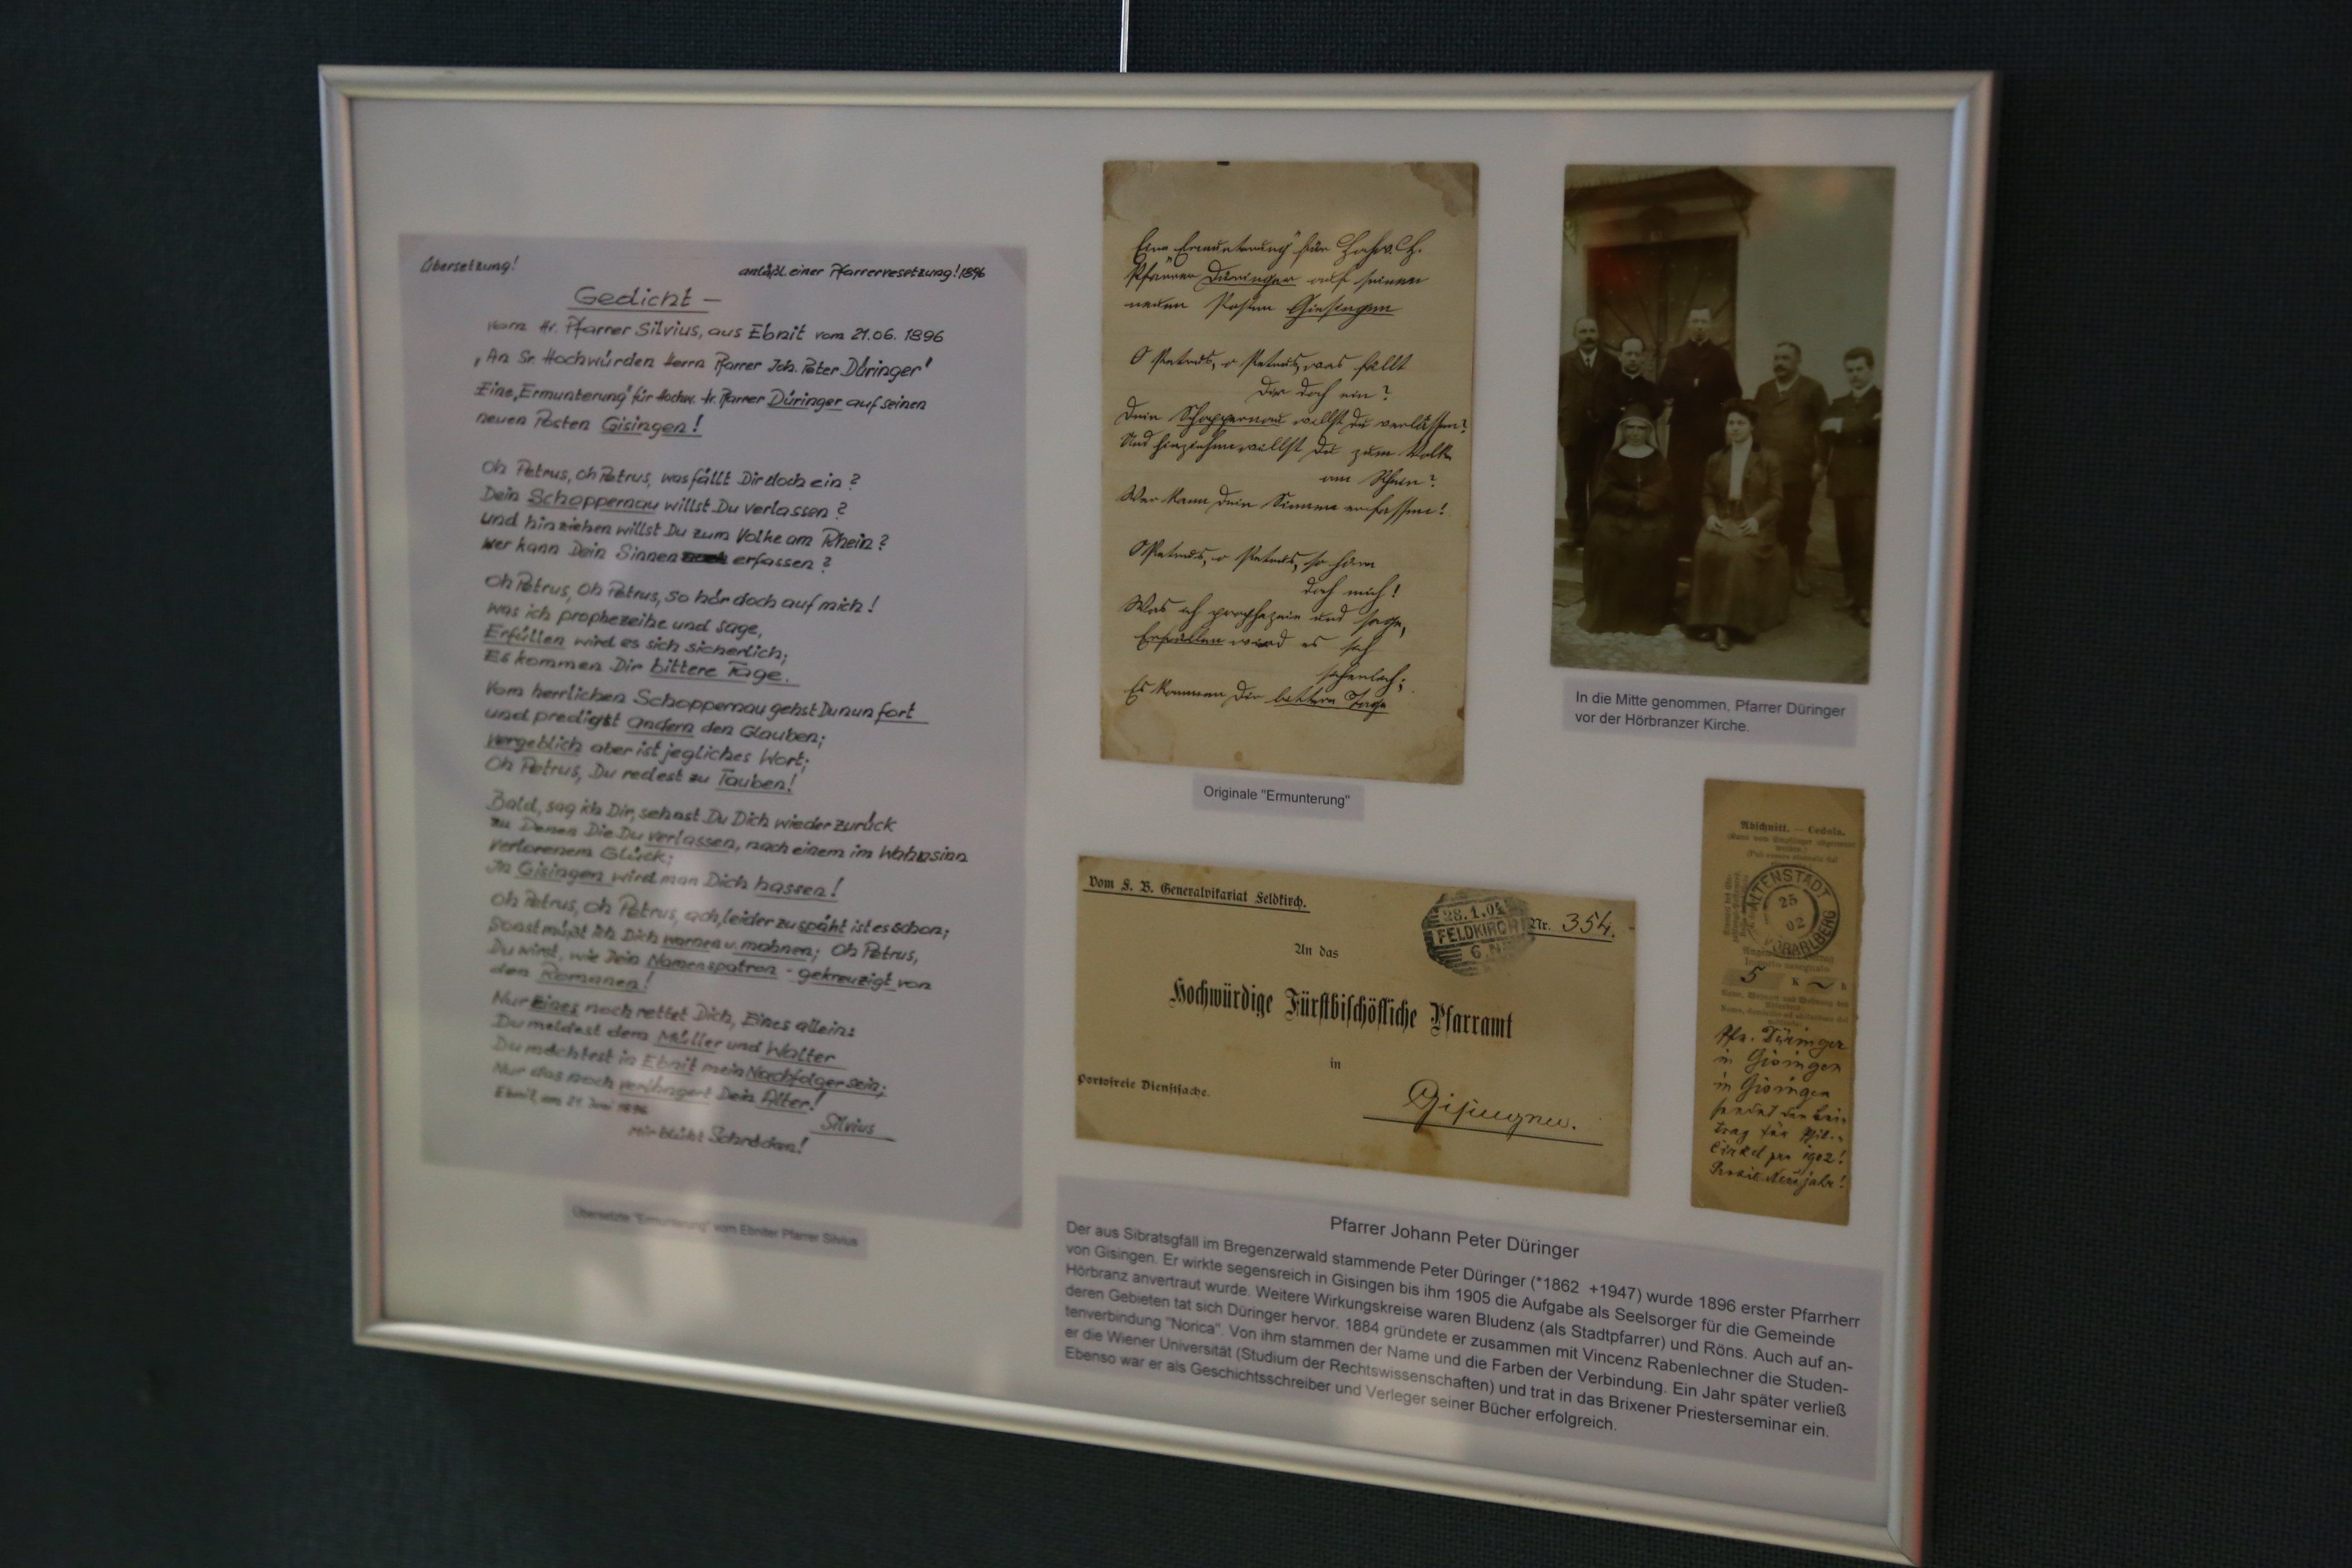 Übersetzung!
anläßl. einer Pfarrerversetzung! 1896
Gedicht –
vom Hr. Pfarrer Silvius, aus Ebnit vom 21.06. 1896
„An Sr. Hochwürden Herrn Pfarrer Joh. Peter Düringer"
Eine „Ermunterung" für Hochw. Hr. Pfarrer Düringer auf seinen
neuen Posten Gisingen!
Oh Petrus, oh Petrus, was fällt Dir doch ein?
Dein Schoppernau willst Du verlassen?
und hinziehen willst Du zum Volke am Rhein?
Wer kann Dein Sinnen erfassen?
Oh Petrus, Oh Petrus, so hör doch auf mich!
was ich prophezeihe und sage,
Erfüllen wird es sich sicherlich;
Es kommen Dir bittere Tage.
Vom herrlichen Schoppernau gehst Du nun fort
und predigst andern den Glauben;
vergeblich aber ist jegliches Wort;
Oh Petrus, Du redest zu Tauben!
Bald, sag ich Dir, sehnst Du Dich wieder zurück
zu Denen Die Du verlassen, nach einem im Wahnsinn
verlorenem Glück;
In Gisingen wird man Dich hassen!
Oh Petrus, Oh Petrus, ach, leider zu späht ist es schon;
Sonst müßt ich Dich warnen u. mahnen; Oh Petrus,
Du wirst, wie Dein Namenspatron - gekreuzigt von
den Romanen!
Nur Eines noch rettet Dich, Eines allein:
Du meldest dem Müller und Walter
Du möchtest in Ebnit mein Nachfolger sein;
Nur das noch verlängert Dein Alter!
Ebnit, am 21. Juni 1896
Silvius
Mir bleibt Schröcken!
Übersetzte "Ermunterung" vom Ebniter Pfarrer Silvius
Eine „Ermunterung" für Hochw. H.
Pfarrer Düringer auf seinen
neuen Posten Gisingen
O Petrus, o Petrus, was fällt
Dir doch ein?
Dein Schoppernau willst du verlassen?
Und hinziehen willst du zum Volke
am Rhein?
Wer kann dein Sinnen erfassen!
O Petrus, o Petrus, so hör
doch mich!
Was ich prophezeie und sage,
Erfüllen wird es sich
sicherlich;
Es kommen Dir bittere Tage
Originale "Ermunterung"
In die Mitte genommen, Pfarrer Düringer
vor der Hörbranzer Kirche.
Vom F. B. Generalvikariat Feldkirch.
28.1.04
FELDKIRCH
6. N
Nr. 354.
An das
Hochwürdige Fürstbischöfliche Pfarramt
in
Portofreie Dienstsache.
Gisingen.
Abschnitt. — Cedola.
ALTENSTADT
25
02
VORARLBERG
5 K
Pfr. Düringer
in Gisingen
in Gisingen
sendet den Bei-
trag für
Cirkel pro 1902!
Prosit Neujahr!
Pfarrer Johann Peter Düringer
Der aus Sibratsgfäll im Bregenzerwald stammende Peter Düringer (*1862 +1947) wurde 1896 erster Pfarrherr
von Gisingen. Er wirkte segensreich in Gisingen bis ihm 1905 die Aufgabe als Seelsorger für die Gemeinde
Hörbranz anvertraut wurde. Weitere Wirkungskreise waren Bludenz (als Stadtpfarrer) und Röns. Auch auf an-
deren Gebieten tat sich Düringer hervor. 1884 gründete er zusammen mit Vincenz Rabenlechner die Studen-
tenverbindung "Norica". Von ihm stammen der Name und die Farben der Verbindung. Ein Jahr später verließ
er die Wiener Universität (Studium der Rechtswissenschaften) und trat in das Brixener Priesterseminar ein.
Ebenso war er als Geschichtsschreiber und Verleger seiner Bücher erfolgreich.